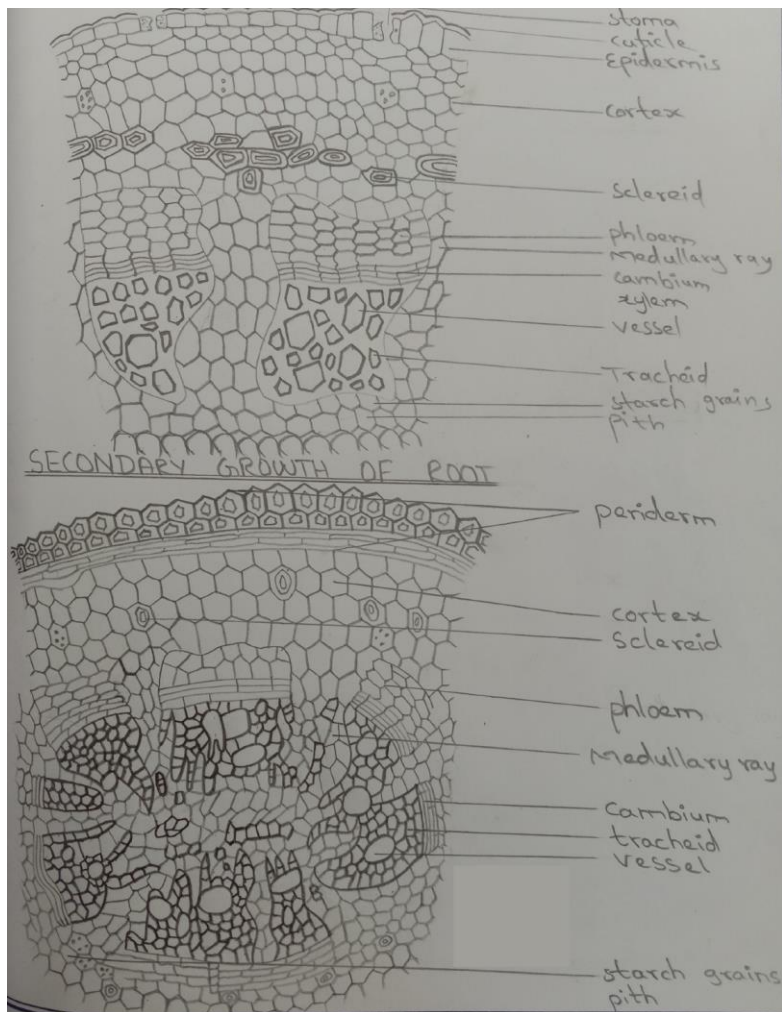 stoma
cuticle
Epidermis
cortex
Sclereid
phloem
Medullary ray
cambium
xylem
vessel
Tracheid
starch grains
pith
SECONDARY GROWTH OF ROOT
periderm
cortex
Sclereid
phloem
Medullary ray
cambium
tracheid
vessel
starch grains
pith